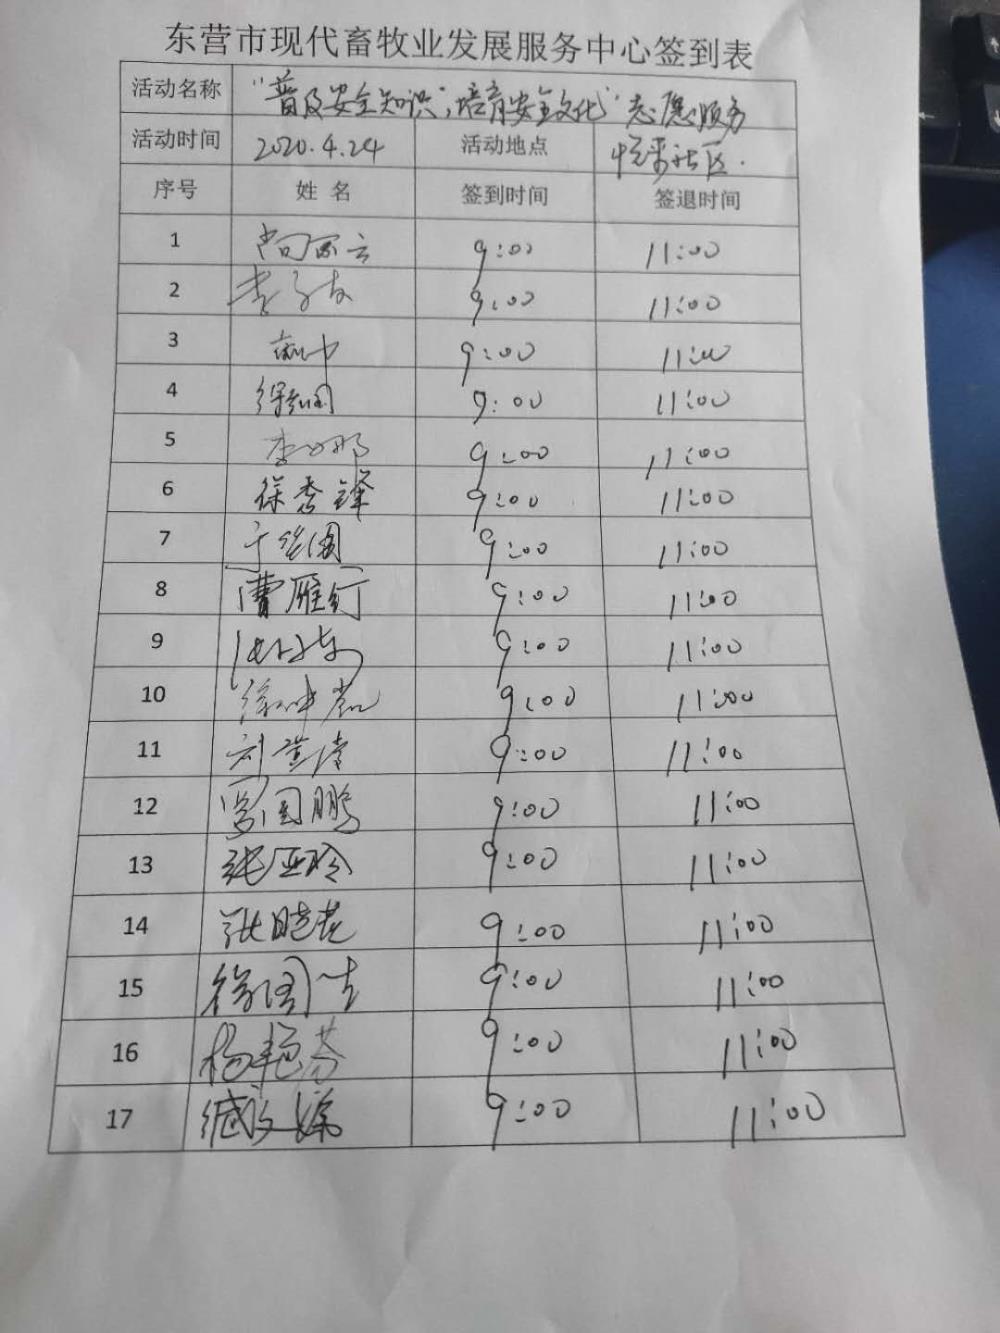 东营市现代畜牧业发展服务中心签到表
活动名称 "普及安全知识,培育安全文化"志愿服务
活动时间 2020.4.24 活动地点 社区.
序号 姓 名 签到时间 签退时间
1 9:00 11:00
2 9:00 11:00
3 9:00 11:00
4 9:00 11:00
5 李 9:00 11:00
6 徐秀锋 9:00 11:00
7 9:00 11:00
8 曹雁钉 9:00 11:00
9 9:00 11:00
10 徐 9:00 11:00
11 刘 9:00 11:00
12 国鹏 9:00 11:00
13 张亚玲 9:00 11:00
14 张晓花 9:00 11:00
15 徐国 9:00 11:00
16 杨艳芬 9:00 11:00
17 9:00 11:00